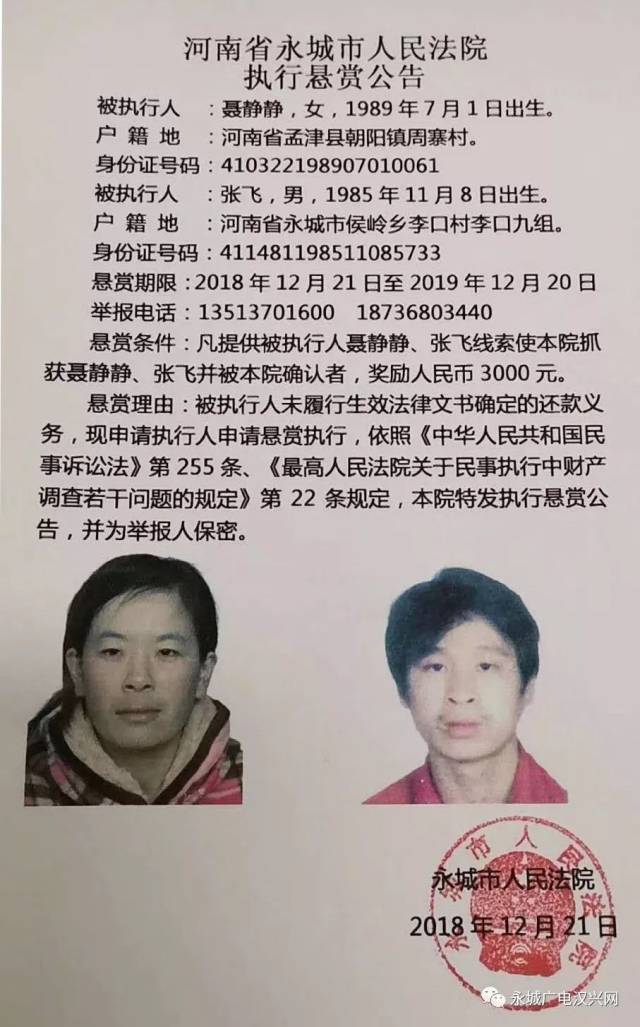 河南省永城市人民法院
执行悬赏公告
被执行人 ：聂静静，女，1989 年 7 月 1 日出生。
户 籍 地 ：河南省孟津县朝阳镇周寨村。
身份证号码：410322198907010061
被执行人 ：张飞，男，1985 年 11 月 8 日出生。
户 籍 地 ：河南省永城市侯岭乡李口村李口九组。
身份证号码：411481198511085733
悬赏期限：2018 年 12 月 21 日至 2019 年 12 月 20 日
举报电话：13513701600 18736803440
悬赏条件：凡提供被执行人聂静静、张飞线索使本院抓
获聂静静、张飞并被本院确认者，奖励人民币 3000 元。
悬赏理由：被执行人未履行生效法律文书确定的还款义
务，现申请执行人申请悬赏执行，依照《中华人民共和国民
事诉讼法》第 255 条、《最高人民法院关于民事执行中财产
调查若干问题的规定》第 22 条规定，本院特发执行悬赏公
告，并为举报人保密。
永城市人民法院
永城市人民法院
2018 年 12 月 21 日
永城广电汉兴网